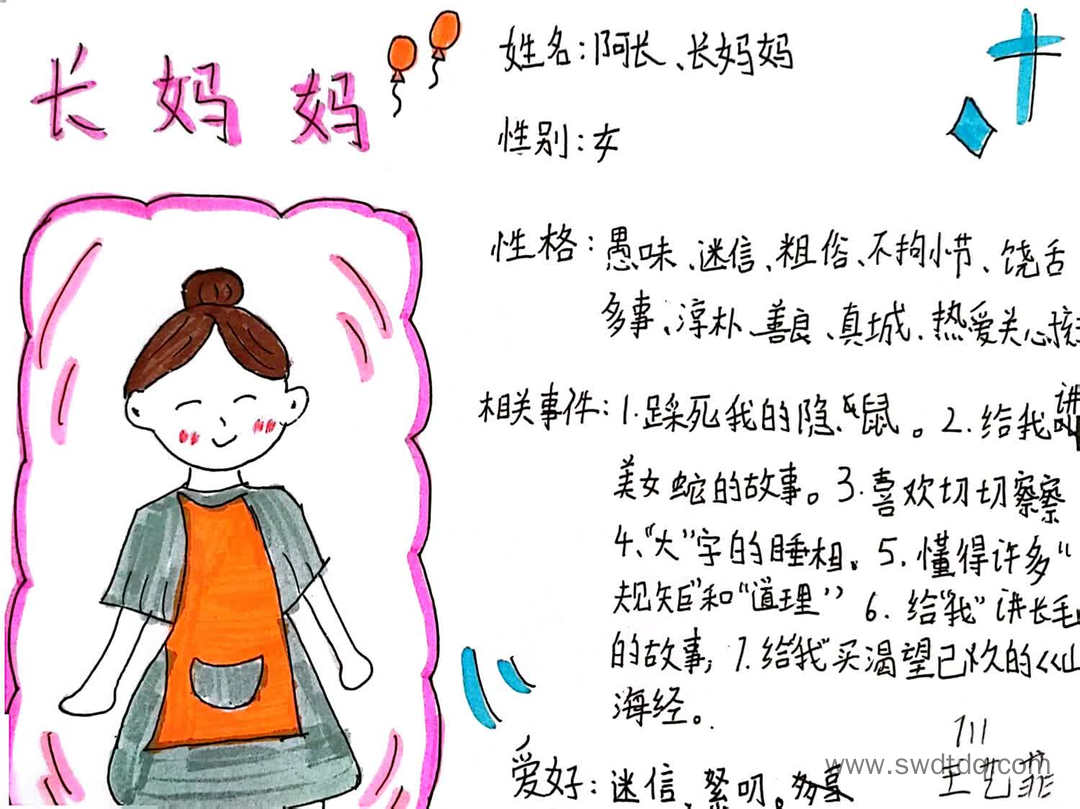 长妈妈
姓名：阿长、长妈妈
性别：女
性格：愚味、迷信、粗俗、不拘小节、饶舌
多事、淳朴、善良、真城、热爱关心孩
相关事件：1.踩死我的隐鼠。2.给我讲
美女蛇的故事。3.喜欢切切察察
4、“大”字的睡相。5.懂得许多“
规矩”和“道理” 6.给“我”讲长毛
的故事，7.给我买渴望已久的《山
海经。
爱好：迷信、絮叨。多事
www.swdtdq.com